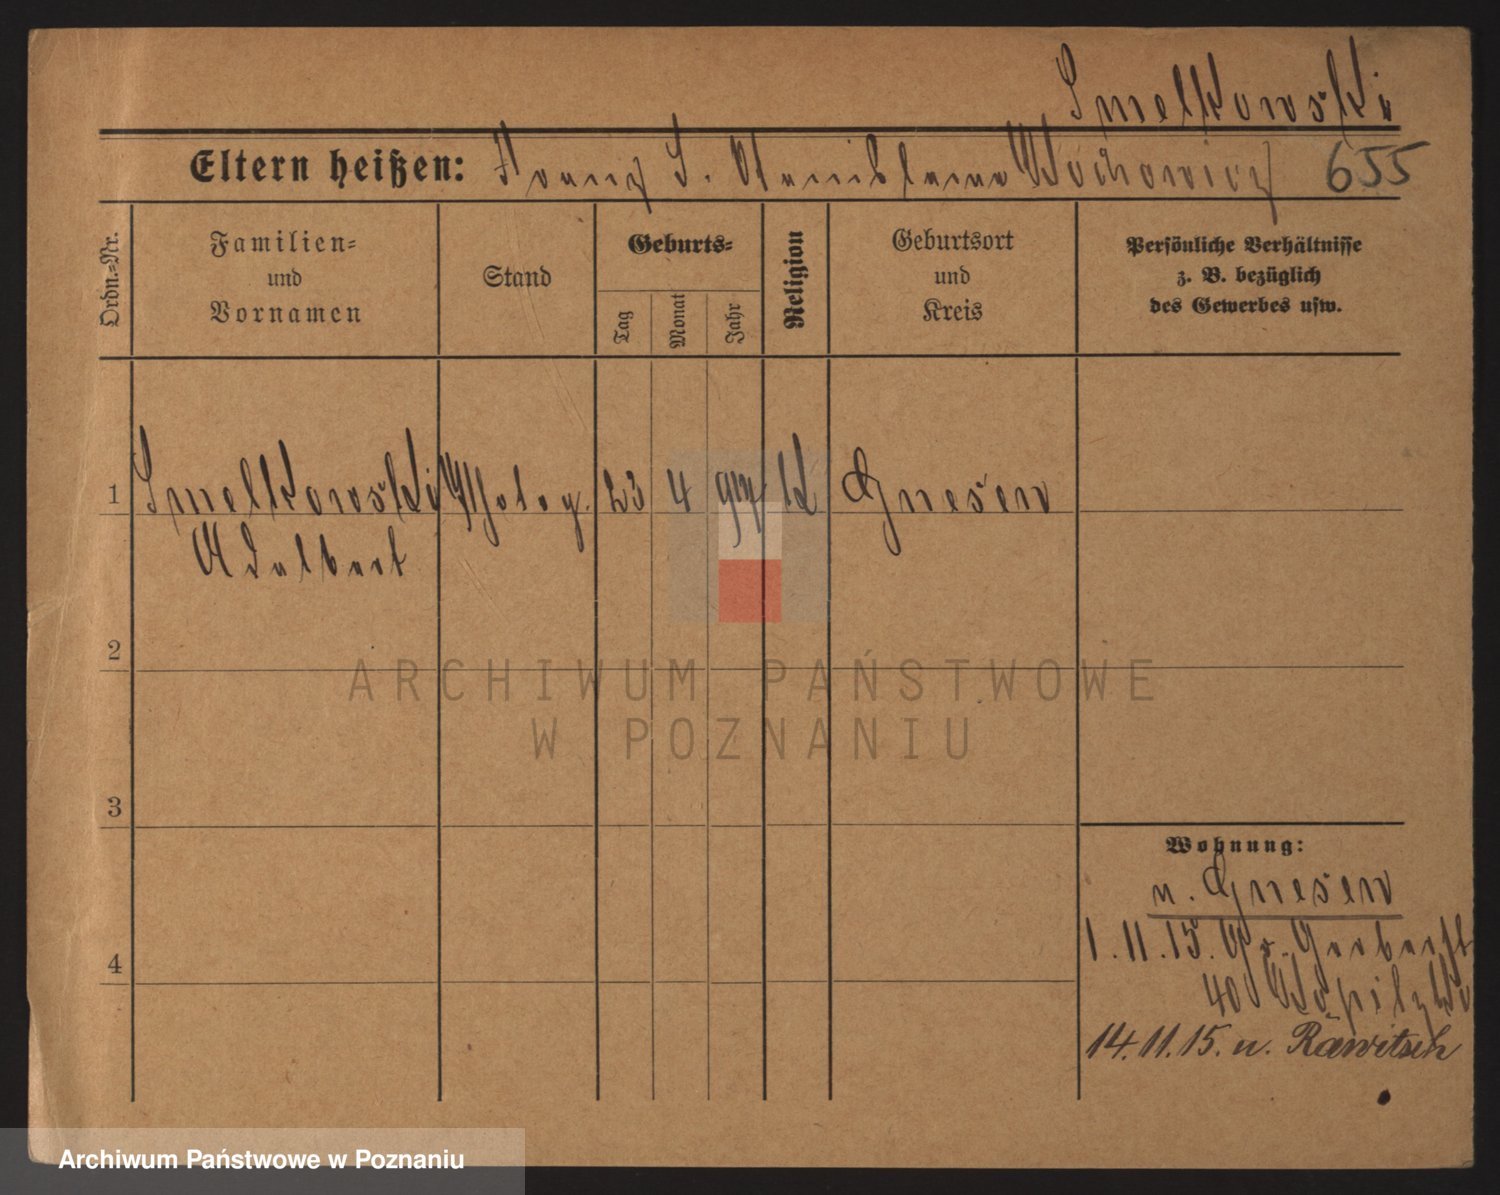 Smelkowski
Eltern heißen: Franz S. Stanislawa Wochowicz 655
Ordn.-Nr.
Familien-
und
Vornamen
Stand
Geburts-
Tag
Monat
Jahr
Religion
Geburtsort
und
Kreis
Persönliche Verhältnisse
z. B. bezüglich
des Gewerbes usw.
1 Smelkowski Photog. 23 4 97 K Gnesen
Adalbert
2
3
4
Wohnung:
n. Gnesen
1.11.15. Gr. Gerberst
40
14.11.15. n. Rawitsch
ARCHIWUM PAŃSTWOWE
W POZNANIU
Archiwum Państwowe w Poznaniu